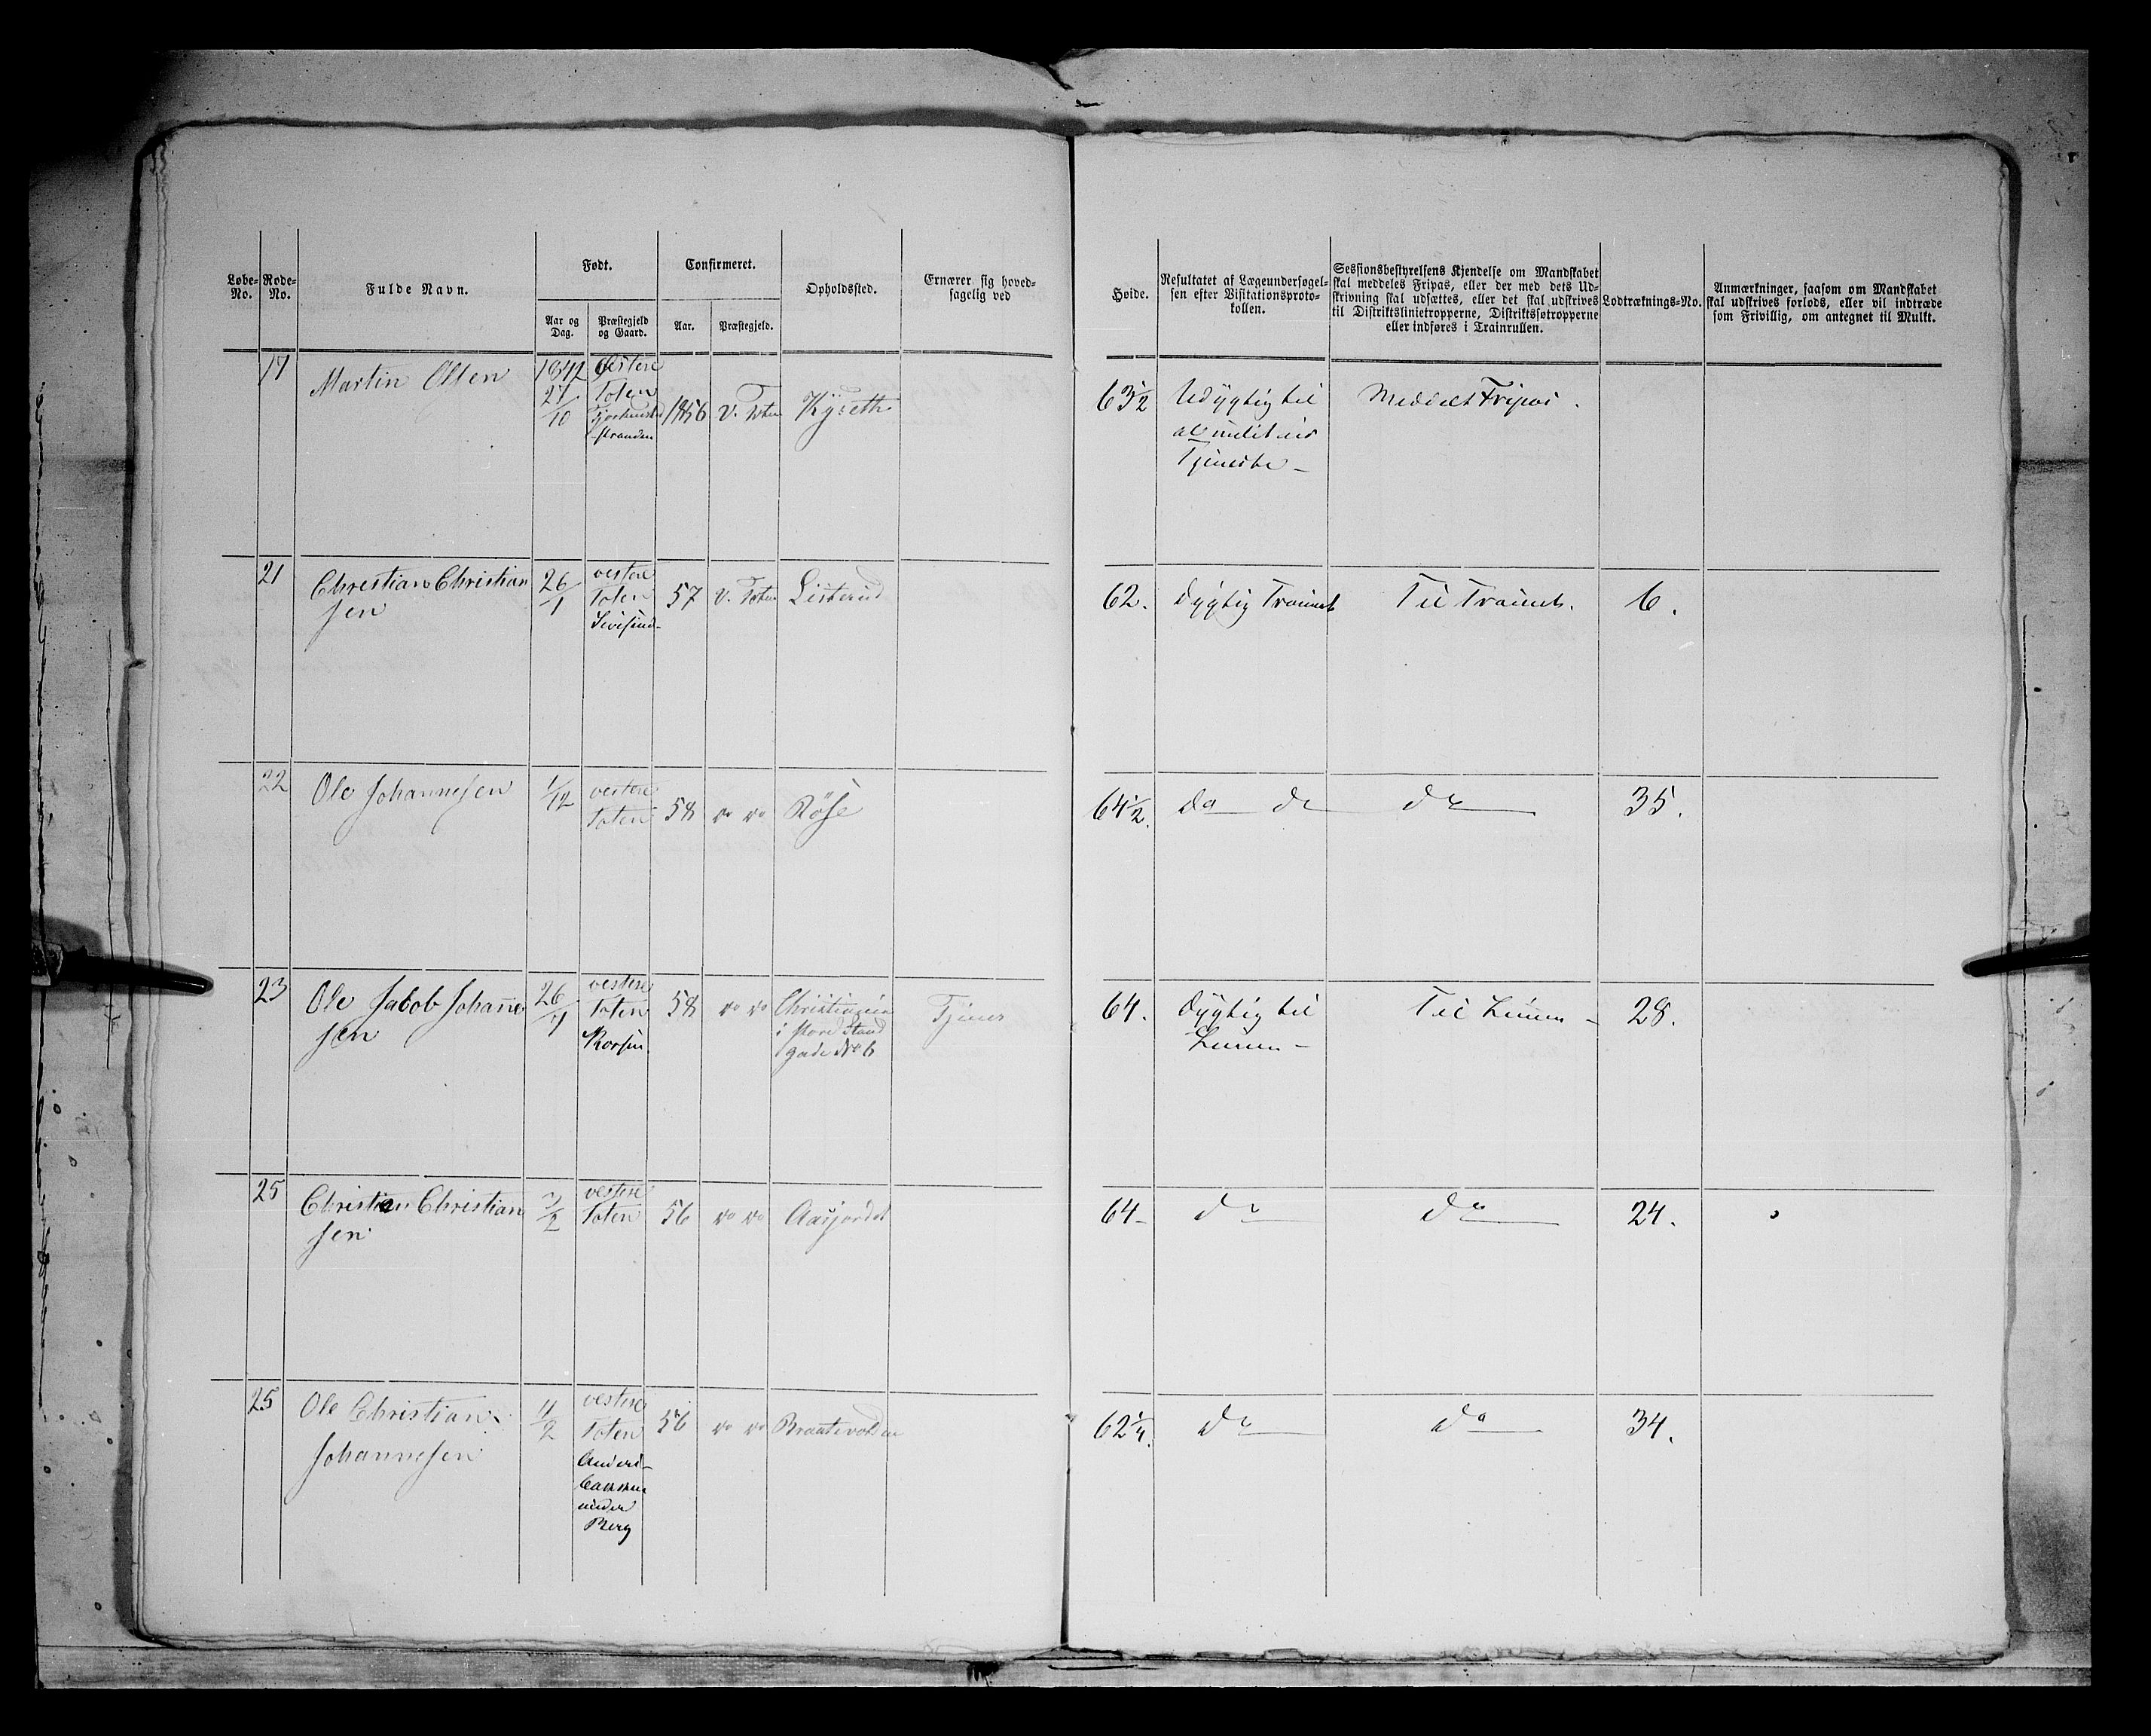 Løbe-No.
Rode-No.
Fulde Navn.
Født.
Aar og Dag.
Præstegjeld og Gaard.
Confirmeret.
Aar.
Præstegjeld.
Opholdssted.
Ernærer sig hoved-
sagelig ved
Høide.
Resultatet af Lægeundersøgel-
sen efter Visitationsproto-
kollen.
Sessionsbestyrelsens Kjendelse om Mandskabet
skal meddeles Fripas, eller der med dets Ud-
skrivning skal udsættes, eller det skal udskrives
til Distriktslinietropperne, Distriktsføtropperne
eller indføres i Trainrullen.
Lodtræknings-No.
Anmærkninger, saasom om Mandskabet
skal udskrives forlods, eller vil indtræde
som Frivillig, om antegnet til Mulkt.
17 Martin Olsen 1842 27/10
Vestere
Toten
1856 V. Toten
63 1/2 Udygtig til
al militair
Tjeneste
Meddelt Fripas.
21 Christian Christian
sen
26/1
vestere
Toten
57 V. Toten Listerud
62. Dygtig Trainet Til Trainet. 6.
22 Ole Johannesen 1/12
vestere
Toten
58 do do Røse
64 1/2. do do do 35.
23 Ole Jacob Johanne
sen
26/7
vestere
Toten
58 do do Christiania
i store Stand
gade No 6
Tjener
64. Dygtig til
Linien
Til Linien 28.
25 Christian Christian
sen
7/2
vestere
Toten
56 do do Aasjordet
64 do do 24.
25 Ole Christian
Johannesen
11/2
vestere
Toten
under
Berg
56 do do Braatevolden
62 1/4. do do 34.